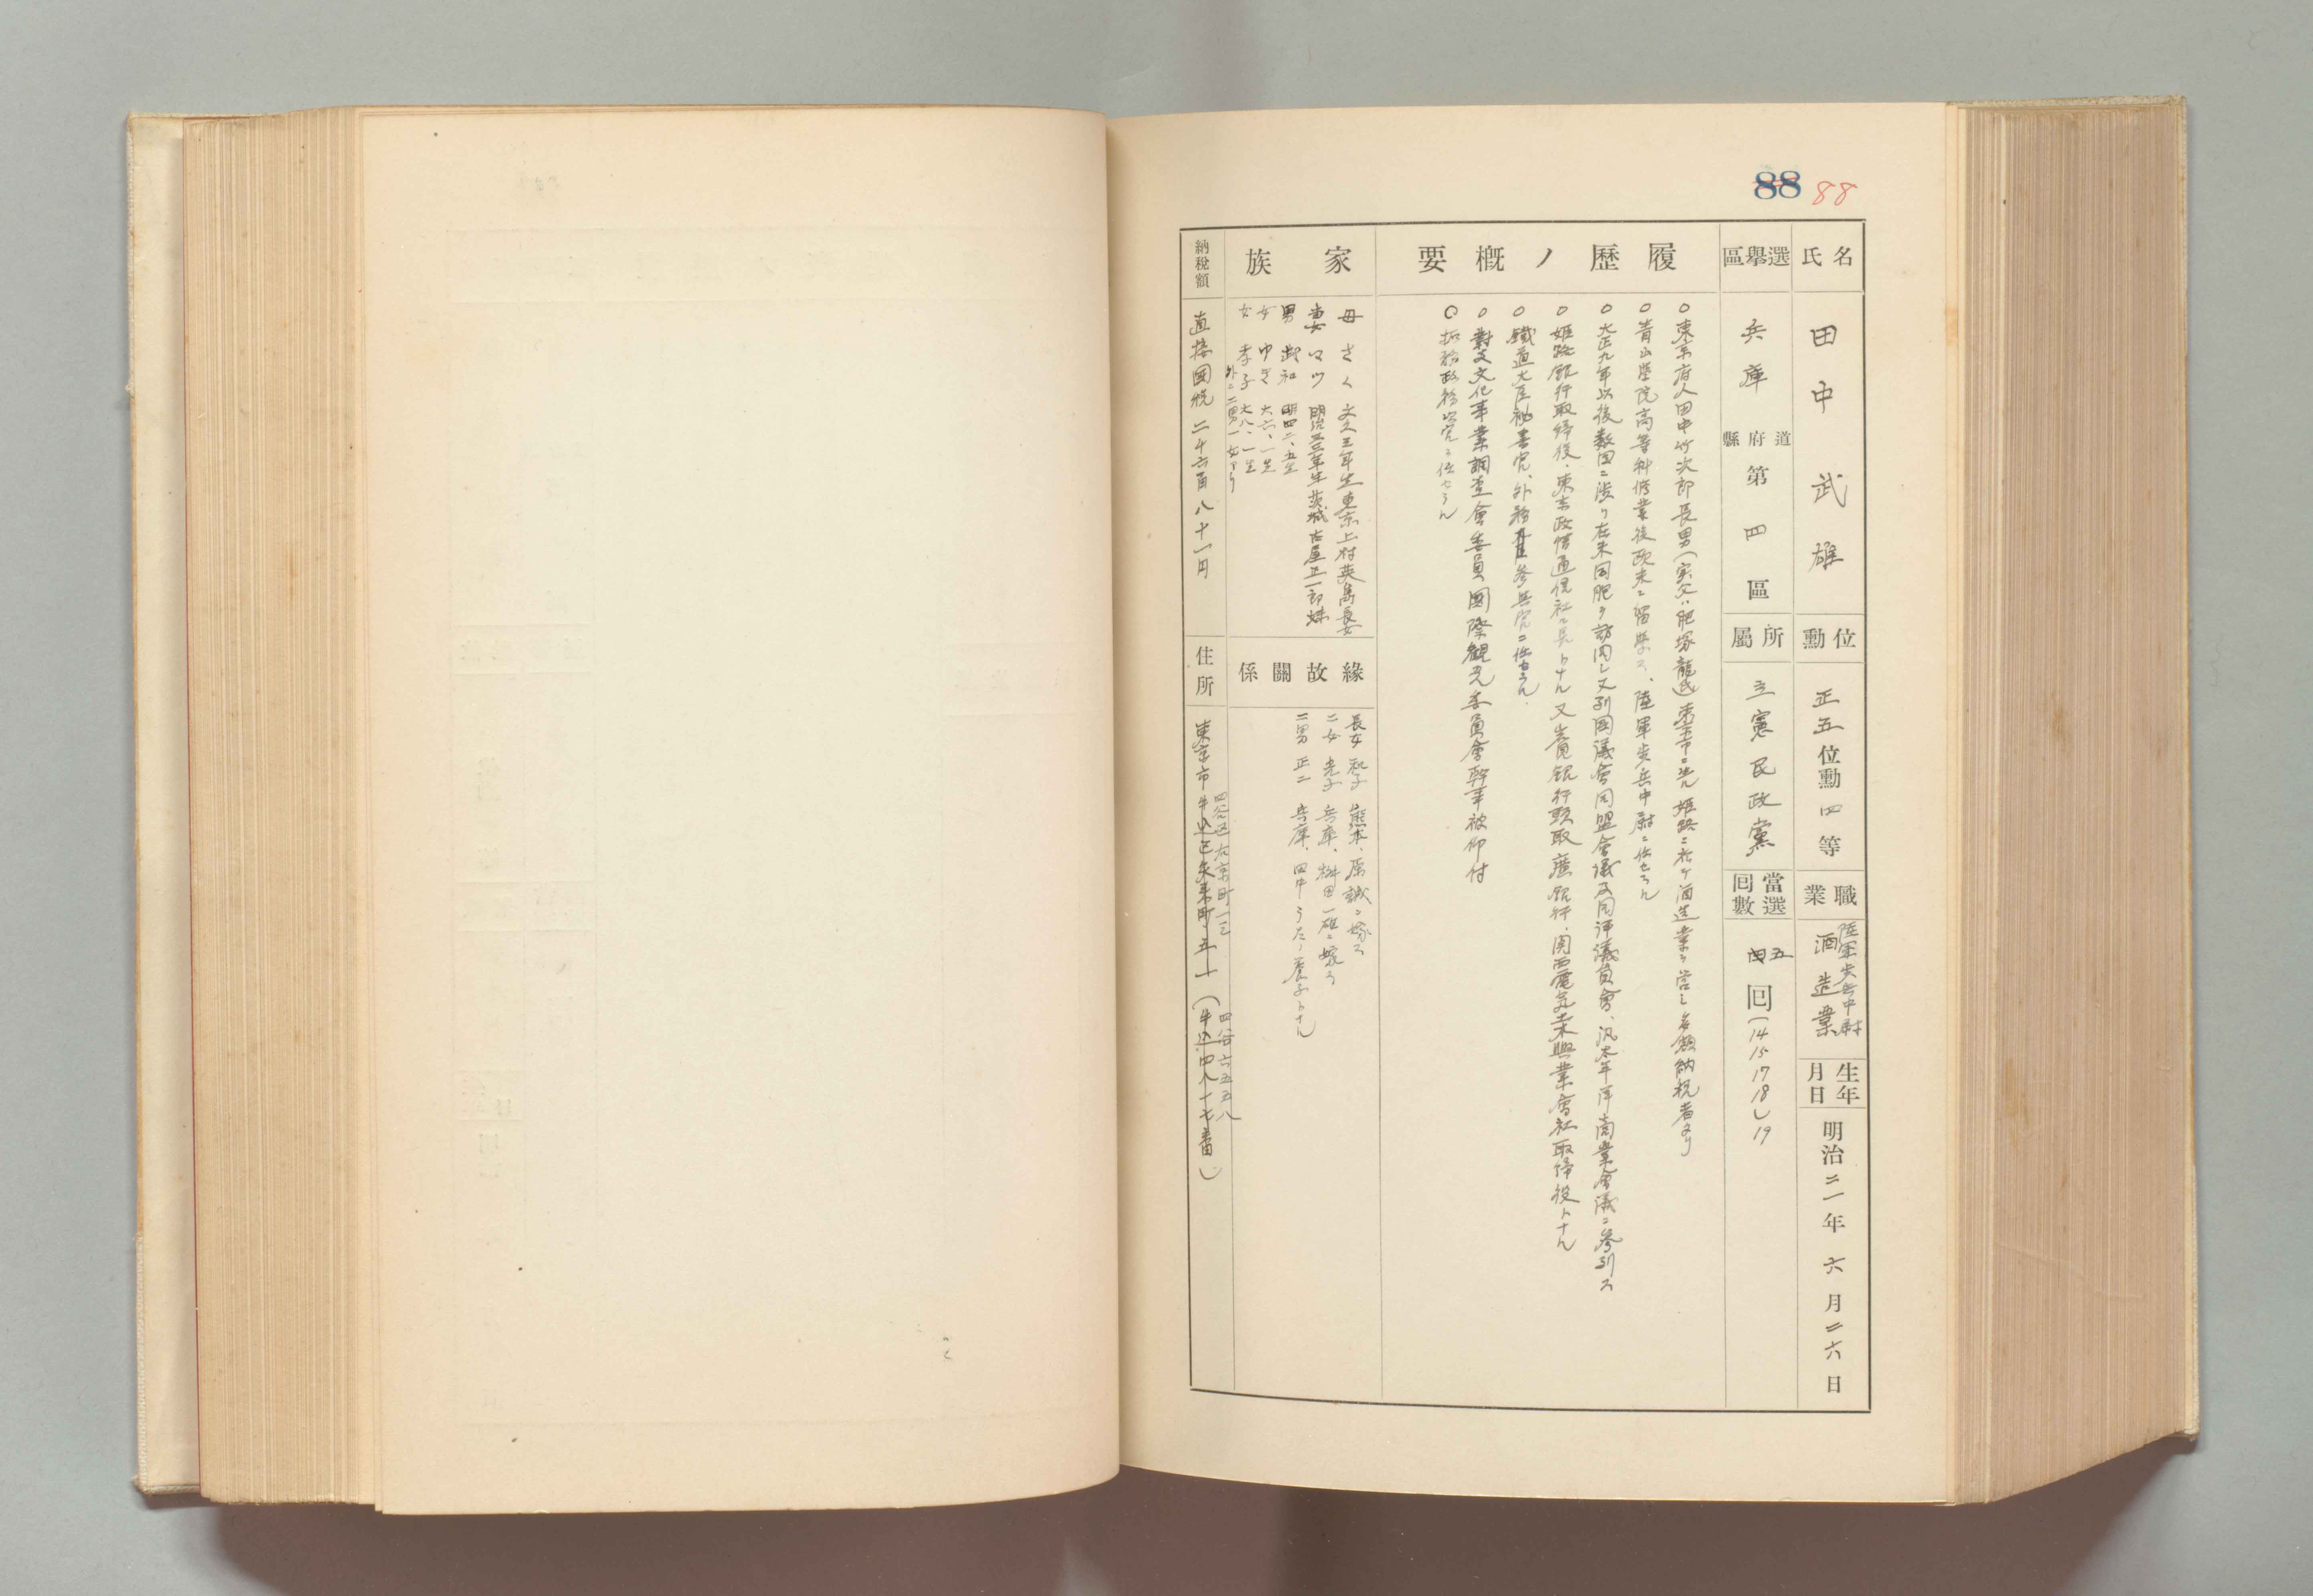 88 88
氏名
田中武雄
位勳
正五位勳四等
職業
陸軍歩兵中尉
酒造業
生年月日
明治二一年六月二六日
選擧區
兵庫道府縣第四區
所屬
立憲民政黨
當選回數
四五回(14 15 17 18) 19
履歷ノ概要
○東京府人田中竹次郎長男(実父ハ肥塚龍氏)東京市ニ生ル 姫路ニ於テ酒造業ヲ営ミ多額納税者タリ
○青山學院高等科修業後欧米ニ留學ス、陸軍歩兵中尉ニ任セラル
○大正九年以後数回ニ渉リ在米同胞ヲ訪問シ又列國議會同盟會議及同評議員會、汎太平洋商業會議ニ参列ス
○姫路銀行取締役、東京政情通信社々長トナル又銀行頭取 銀行、関西電気未興業會社取締役トナル
○鐵道大臣秘書官、外務参與官ニ任セラル
○對支文化事業調査會委員 國際観光委員會幹事被仰付
○拓務政務官ニ任セラル
家族
母 さく 文久三年生 東京上村英萬長女
妻 マツ 明治三三年生 茨城古屋正一郎妹
男 武和 明四二、五生
女 ゆき 大六、一生
女 孝子 大八、一生
外ニ二男一女アリ
緣故關係
長女 和子 熊本、原誠ニ嫁ス
二女 光子 兵庫、桝田一雄ニ嫁ス
二男 正二 兵庫、田中うたノ養子トナル
納稅額
直接國税二千六百八十一円
住所
四谷区右京町一三
四谷六五五八
東京市牛込区矢来町五一(牛込四八一七番)